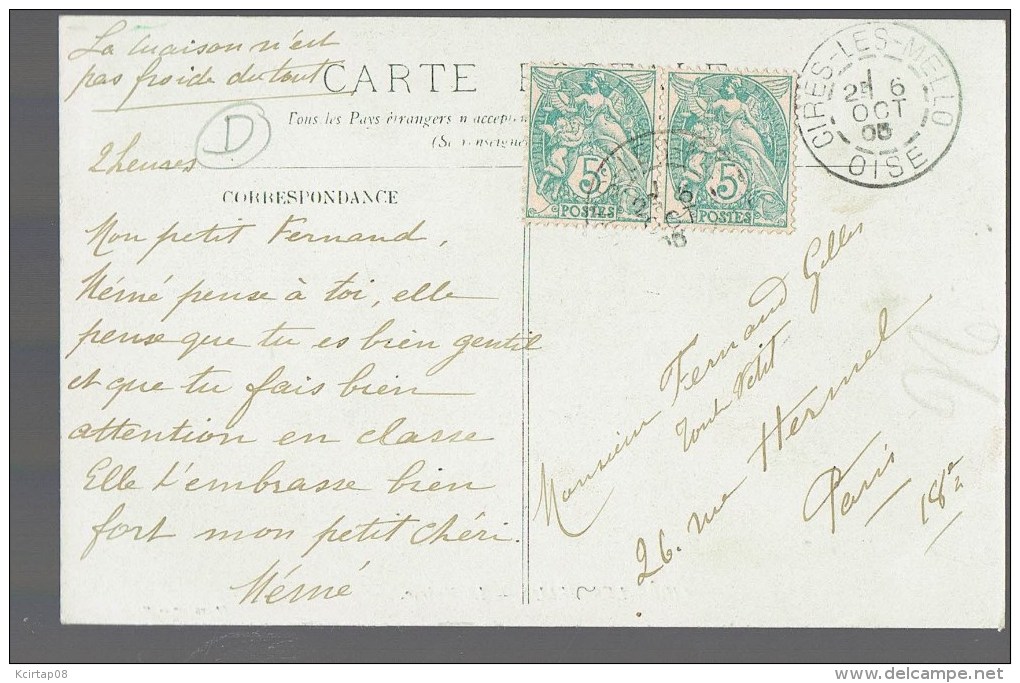 La maison n'est
pas froide du tout
CARTE
Tous les Pays étrangers n'accepten
(Se renseigne
D
2 heures
CORRESPONDANCE
Mon petit Fernand,
Mémé pense à toi, elle
pense que tu es bien gentil
et que tu fais bien
attention en classe
Elle t'embrasse bien
fort mon petit chéri.
Mémé
5c
POSTES
5c
POSTES
CIRES-LES-MELLO
6
OCT
OISE
Monsieur Fernand Gilles
Tout Petit
26. rue Hermel
Paris
18e
Kcirtap08
delcampe.net